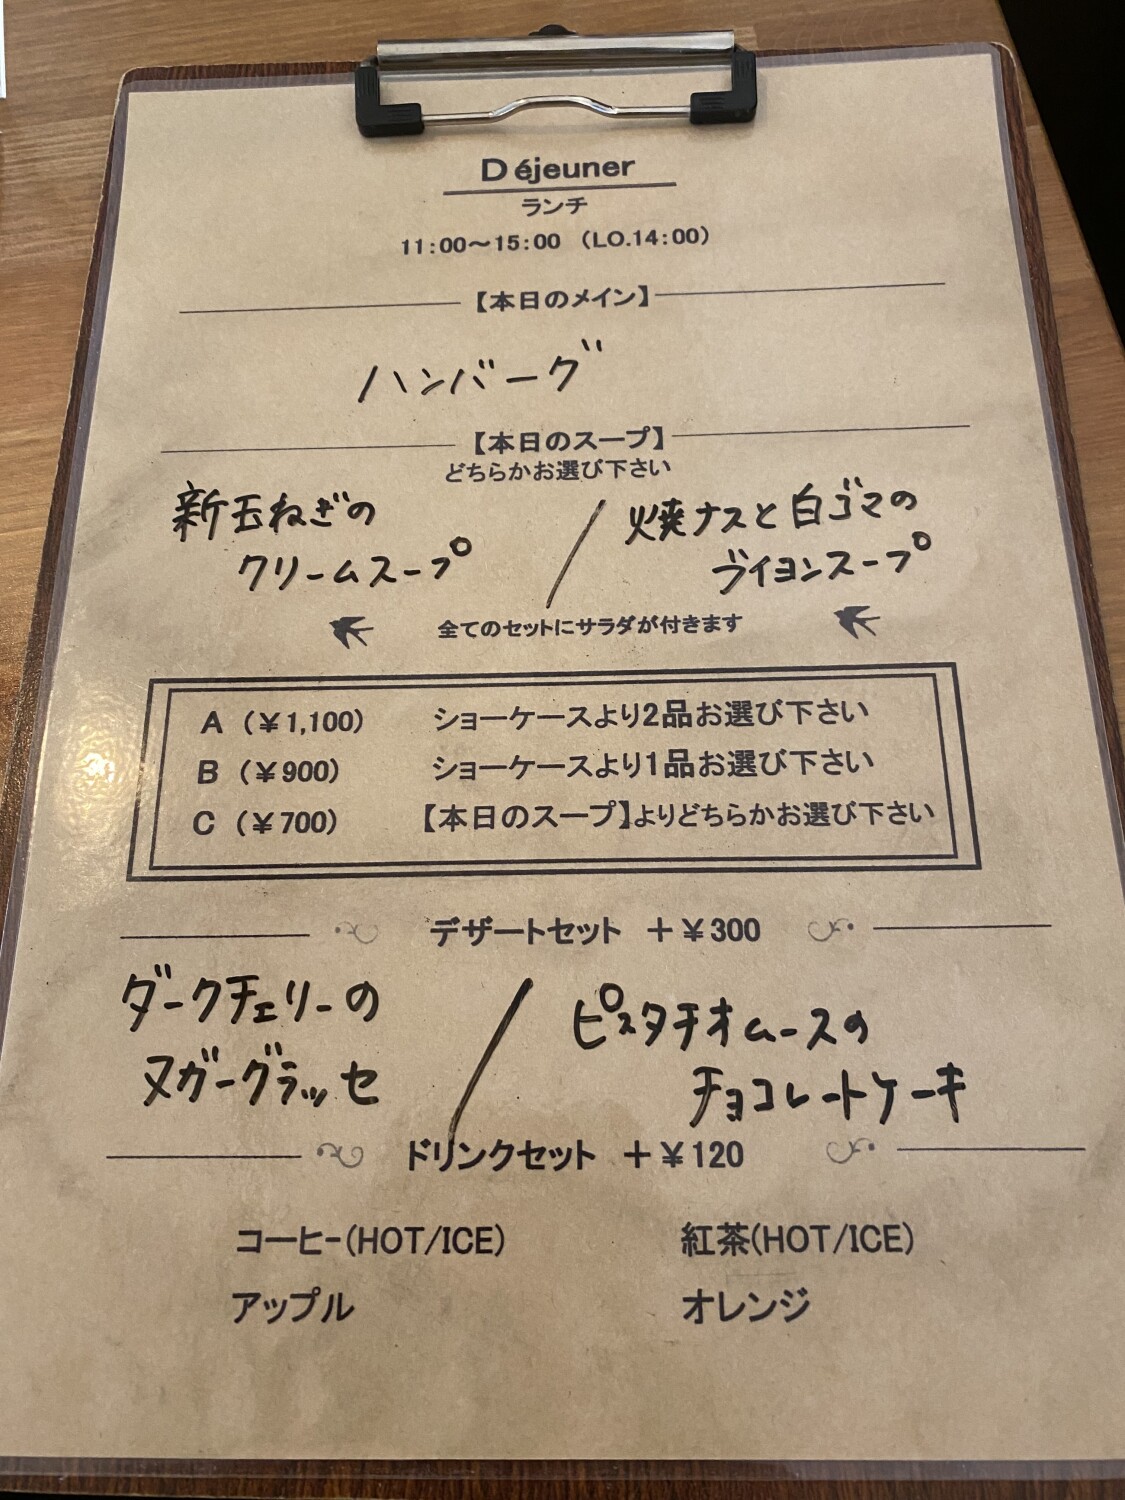 Déjeuner
ランチ
11:00～15:00 （LO.14:00）
【本日のメイン】
ハンバーグ
【本日のスープ】
どちらかお選び下さい
新玉ねぎの
クリームスープ
/
焼ナスと白ゴマの
ブイヨンスープ
全てのセットにサラダが付きます
A （￥1,100） ショーケースより2品お選び下さい
B （￥900） ショーケースより1品お選び下さい
C （￥700） 【本日のスープ】よりどちらかお選び下さい
デザートセット ＋￥300
ダークチェリーの
ヌガーグラッセ
/
ピスタチオムースの
チョコレートケーキ
ドリンクセット ＋￥120
コーヒー(HOT/ICE) 紅茶(HOT/ICE)
アップル オレンジ